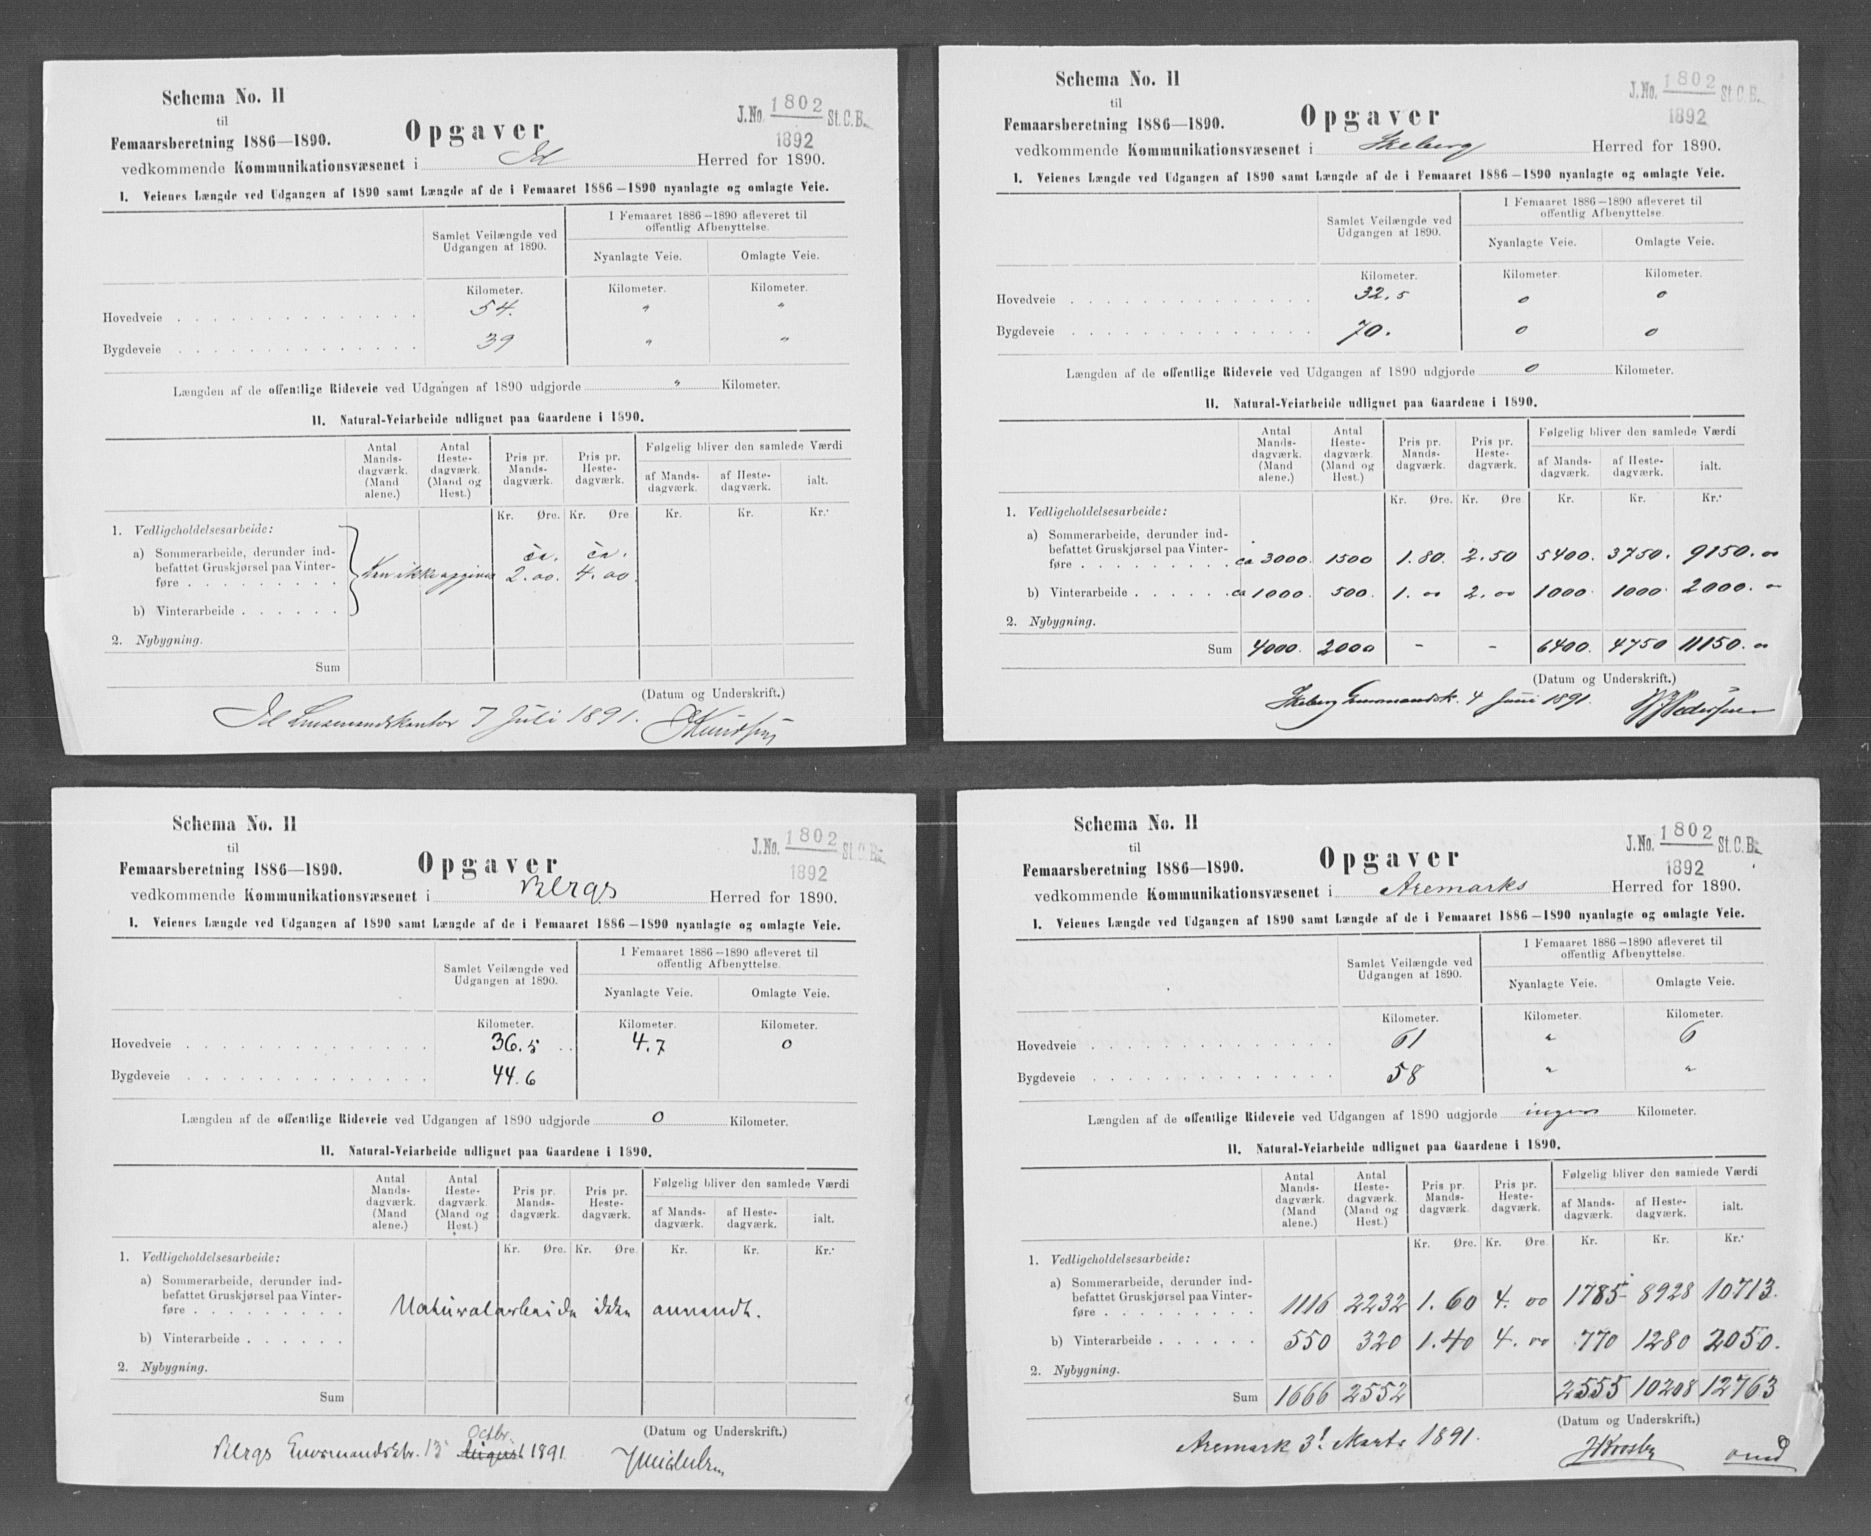 Schema No. II
til
Femaarsberetning 1886—1890.
Opgaver
J.No. 1802 St.C.B.
1892
vedkommende Kommunikationsvæsenet i Id Herred for 1890.
I. Veienes Længde ved Udgangen af 1890 samt Længde af de i Femaaret 1886—1890 nyanlagte og omlagte Veie.
Samlet Veilængde ved
Udgangen af 1890.
I Femaaret 1886—1890 afleveret til
offentlig Afbenyttelse.
Nyanlagte Veie. Omlagte Veie.
Kilometer. Kilometer. Kilometer.
Hovedveie 54. " "
Bygdeveie 39 " "
Længden af de offentlige Rideveie ved Udgangen af 1890 udgjorde " Kilometer.
II. Natural-Veiarbeide udlignet paa Gaardene i 1890.
Antal Mands-dagværk. (Mand alene.)
Antal Heste-dagværk. (Mand og Hest.)
Pris pr. Mands-dagværk.
Pris pr. Heste-dagværk.
Følgelig bliver den samlede Værdi
af Mands-dagværk. af Heste-dagværk. ialt.
Kr. Øre. Kr. Øre Kr. Kr. Kr.
1. Vedligeholdelsesarbeide:
a) Sommerarbeide, derunder ind-
befattet Gruskjørsel paa Vinter-
føre
Kan ikke opgives ca. 2.00. ca. 4.00.
b) Vinterarbeide
2. Nybygning.
Sum
(Datum og Underskrift.)
Id Lensmandskontor 7 Juli 1891. Knudsen
Schema No. II
til
Femaarsberetning 1886—1890.
Opgaver
J.No. 1802 St.C.B.
1892
vedkommende Kommunikationsvæsenet i Skeberg Herred for 1890.
I. Veienes Længde ved Udgangen af 1890 samt Længde af de i Femaaret 1886—1890 nyanlagte og omlagte Veie.
Samlet Veilængde ved
Udgangen af 1890.
I Femaaret 1886—1890 afleveret til
offentlig Afbenyttelse.
Nyanlagte Veie. Omlagte Veie.
Kilometer. Kilometer. Kilometer.
Hovedveie 32.5 0 0
Bygdeveie 70. 0 0
Længden af de offentlige Rideveie ved Udgangen af 1890 udgjorde 0 Kilometer.
II. Natural-Veiarbeide udlignet paa Gaardene i 1890.
Antal Mands-dagværk. (Mand alene.)
Antal Heste-dagværk. (Mand og Hest.)
Pris pr. Mands-dagværk.
Pris pr. Heste-dagværk.
Følgelig bliver den samlede Værdi
af Mands-dagværk. af Heste-dagværk. ialt.
Kr. Øre. Kr. Øre Kr. Kr. Kr.
1. Vedligeholdelsesarbeide:
a) Sommerarbeide, derunder ind-
befattet Gruskjørsel paa Vinter-
føre ca 3000. 1500 1.80. 2.50 5400. 3750. 9150.00
b) Vinterarbeide ca 1000. 500. 1.00 2.00 1000 1000 2000.00
2. Nybygning.
Sum 4000. 2000 - - 6400. 4750 11150.00
(Datum og Underskrift.)
Skeberg Lensmandsk. 4 Juni 1891. Pedersen
Schema No. II
til
Femaarsberetning 1886—1890.
Opgaver
J.No. 1802 St.C.B.
1892
vedkommende Kommunikationsvæsenet i Bergs Herred for 1890.
I. Veienes Længde ved Udgangen af 1890 samt Længde af de i Femaaret 1886—1890 nyanlagte og omlagte Veie.
Samlet Veilængde ved
Udgangen af 1890.
I Femaaret 1886—1890 afleveret til
offentlig Afbenyttelse.
Nyanlagte Veie. Omlagte Veie.
Kilometer. Kilometer. Kilometer.
Hovedveie 36.5 4.7 0
Bygdeveie 44.6
Længden af de offentlige Rideveie ved Udgangen af 1890 udgjorde 0 Kilometer.
II. Natural-Veiarbeide udlignet paa Gaardene i 1890.
Antal Mands-dagværk. (Mand alene.)
Antal Heste-dagværk. (Mand og Hest.)
Pris pr. Mands-dagværk.
Pris pr. Heste-dagværk.
Følgelig bliver den samlede Værdi
af Mands-dagværk. af Heste-dagværk. ialt.
Kr. Øre. Kr. Øre Kr. Kr. Kr.
1. Vedligeholdelsesarbeide:
a) Sommerarbeide, derunder ind-
befattet Gruskjørsel paa Vinter-
føre
Naturalarbeide ikke anvendt.
b) Vinterarbeide
2. Nybygning.
Sum
(Datum og Underskrift.)
Octbr.
Bergs Lensmandsktr. 15 August 1891.
Schema No. II
til
Femaarsberetning 1886—1890.
Opgaver
J.No. 1802 St.C.B.
1892
vedkommende Kommunikationsvæsenet i Aremarks Herred for 1890.
I. Veienes Længde ved Udgangen af 1890 samt Længde af de i Femaaret 1886—1890 nyanlagte og omlagte Veie.
Samlet Veilængde ved
Udgangen af 1890.
I Femaaret 1886—1890 afleveret til
offentlig Afbenyttelse.
Nyanlagte Veie. Omlagte Veie.
Kilometer. Kilometer. Kilometer.
Hovedveie 61 " 6
Bygdeveie 58 " "
Længden af de offentlige Rideveie ved Udgangen af 1890 udgjorde ingen Kilometer.
II. Natural-Veiarbeide udlignet paa Gaardene i 1890.
Antal Mands-dagværk. (Mand alene.)
Antal Heste-dagværk. (Mand og Hest.)
Pris pr. Mands-dagværk.
Pris pr. Heste-dagværk.
Følgelig bliver den samlede Værdi
af Mands-dagværk. af Heste-dagværk. ialt.
Kr. Øre. Kr. Øre. Kr. Kr. Kr.
1. Vedligeholdelsesarbeide:
a) Sommerarbeide, derunder ind-
befattet Gruskjørsel paa Vinter-
føre 1116 2232 1.60 4.00 1785 8928 10713.
b) Vinterarbeide 550 320 1.40 4.00 770 1280 2050.
2. Nybygning.
Sum 1666 2552 2555 10208 12763
(Datum og Underskrift.)
Aremark 3! Marts 1891. Krosby